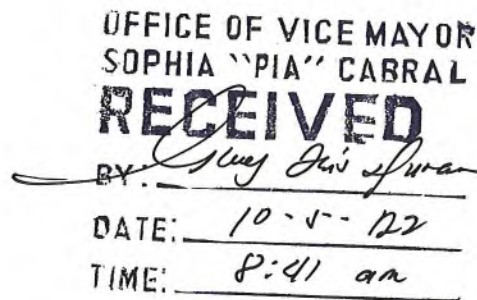 OFFICE OF VICE MAYOR
SOPHIA "PIA" CABRAL
RECEIVED
BY:
DATE: 10-5-22
TIME: 8:41 am